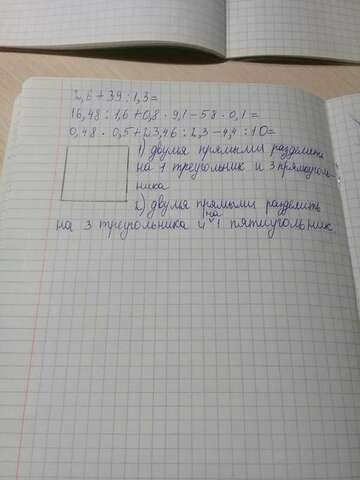 2,6+39:1,3=
16,48:1,6+0,8·9,1-58·0,1=
0,48·0,5+23,46:2,3-4,4:10=
1) двумя прямыми разделить
на 1 треугольник и 3 прямоуголь-
ника
2) двумя прямыми разделить
на 3 треугольника и на 1 пятиугольник